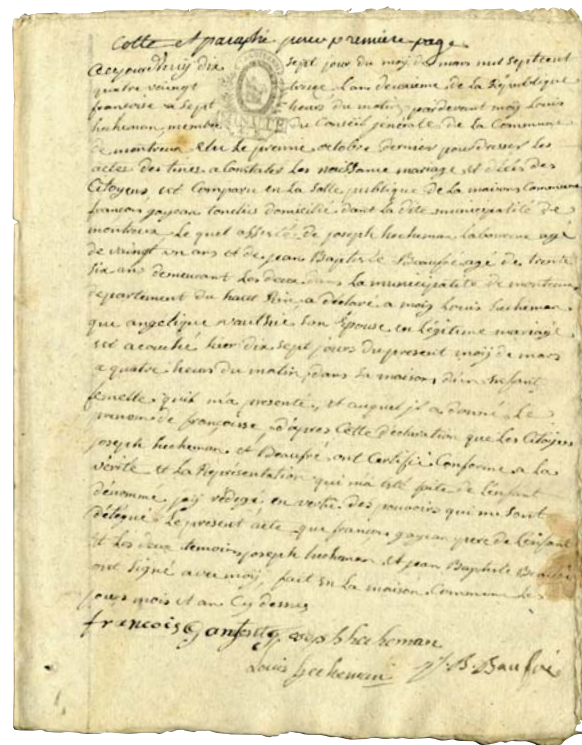 Cotte et paraphé pour premiere page
aujourd'huij dix sept jour du moij de mars mil sept cent
quatre vaingt treise Lan deuxieme de la République
francoise à sept heures du matin, pardevant moij Louis
hecheman, membre du Conseil générale de La Commune
de montreux Elu Le premie octobre dernier pour dresser les
actes destines a Constater Les naissance mariage et décès des
Citoyens est Comparu en La Salle publique de la maison Commune
françois domicilié dans la dite municipalité de
montreux Le quel assisté de joseph hecheman Laboureur agé
de vaingt un ans et de jean Baptiste Beaufré agé de trente
six ans demeurant Les deux dans La municipalité de montreux
departement du haut Rhin, a déclaré a moij Louis hecheman
que angelique vauthié son Epouse en Légitime mariage
est acouché hier dix sept jours du present moij de mars
a quatre heurs du matin, dans sa maison d'un Enfant
femelle quil ma presenté, et auquel jl a donné Le
prenom de françoisse, d'apres Cette declaration que Les Citoijens
joseph hecheman et Beaufré ont Certifié Conforme a La
vérité et La Représentation qui ma été faite de L'enfant
dénommé jaij rédegé en vertu des pouvoirs qui me sont
délégué Le present acte que françois pere de L'enfant
Et Les deux temoins joseph hecheman Et jean Baptiste Beaufré
ont Signé avec moij, fait En La maison Commune Les
jours mois et an Cij dessus
francois joseph hecheman
Louis hecheman J. B. Baufré